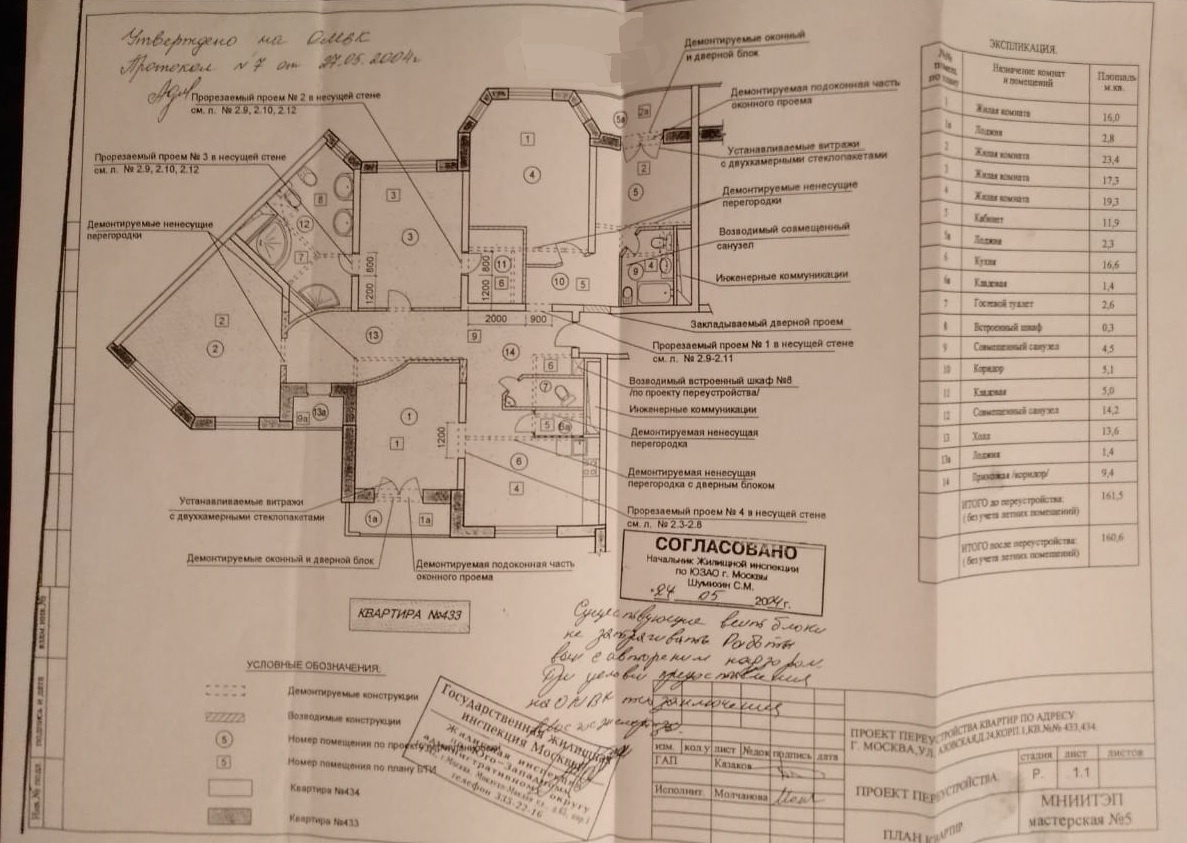 Утверждено на ОМВК
Протокол № 7 от 27.05.2004г
Прорезаемый проем № 2 в несущей стене
см. л. № 2.9, 2.10, 2.12
Прорезаемый проем № 3 в несущей стене
см. л. № 2.9, 2.10, 2.12
Демонтируемые ненесущие
перегородки
Демонтируемые оконный
и дверной блок
Демонтируемая подоконная часть
оконного проема
Устанавливаемые витражи
с двухкамерными стеклопакетами
Демонтируемые ненесущие
перегородки
Возводимый совмещенный
санузел
Инженерные коммуникации
Закладываемый дверной проем
Прорезаемый проем № 1 в несущей стене
см. л. № 2.9-2.11
Возводимый встроенный шкаф №8
/по проекту переустройства/
Инженерные коммуникации
Демонтируемая ненесущая
перегородка
Демонтируемая ненесущая
перегородка с дверным блоком
Прорезаемый проем № 4 в несущей стене
см. л. № 2.3-2.8
Устанавливаемые витражи
с двухкамерными стеклопакетами
Демонтируемые оконный и дверной блок
Демонтируемая подоконная часть
оконного проема
1
4
5а
2а
2
5
8
12
7
3
3
800
1200
11
6
800
1200
10
5
9
4
2000
900
2
2
13
9
14
6
7
5
6а
9а
13а
1
1
1200
6
4
1а
1а
КВАРТИРА №433
СОГЛАСОВАНО
Начальник Жилищной инспекции
по ЮЗАО г. Москвы
Шумихин С.М.
24 05 2004г.
Существующие вент блоки
не затрагивать Работы
вып с авторским надзором.
При условии предоставления
на ОМВК тех заключения
ЭКСПЛИКАЦИЯ.
Назначение комнат
и помещений
Площадь
м.кв.
1 Жилая комната 16,0
1а Лоджия 2,8
2 Жилая комната 23,4
3 Жилая комната 17,3
4 Жилая комната 19,3
5 Кабинет 11,9
5а Лоджия 2,3
6 Кухня 16,6
6а Кладовая 1,4
7 Гостевой туалет 2,6
8 Встроенный шкаф 0,3
9 Совмещенный санузел 4,5
10 Коридор 5,1
11 Кладовая 5,0
12 Совмещенный санузел 14,2
13 Холл 13,6
13а Лоджия 1,4
14 Прихожая /коридор/ 9,4
ИТОГО до переустройства:
(без учета летних помещений) 161,5
ИТОГО после переустройства:
(без учета летних помещений) 160,6
УСЛОВНЫЕ ОБОЗНАЧЕНИЯ:
Демонтируемые конструкции
Возводимые конструкции
5 Номер помещения по проекту
5 Номер помещения по плану БТИ
Квартира №434
Квартира №433
Государственная жилищная
инспекция Москвы
Жилищная инспекция
по Юго-Западному
административному округу
телефон 335-22-16
изм. кол.у лист №док подпись дата
ГАП Казаков
Исполнит. Молчанова
ПРОЕКТ ПЕРЕУСТРОЙСТВА КВАРТИР ПО АДРЕСУ
Г. МОСКВА, УЛ. АЗОВСКАЯ, Д.24, КОРП.1, КВ.№№ 433,434.
ПРОЕКТ ПЕРЕУСТРОЙСТВА
стадия лист листов
Р. 1.1
ПЛАН КВАРТИР
МНИИТЭП
мастерская №5
Инв.№ подл.
подпись и дата
взам инв.№